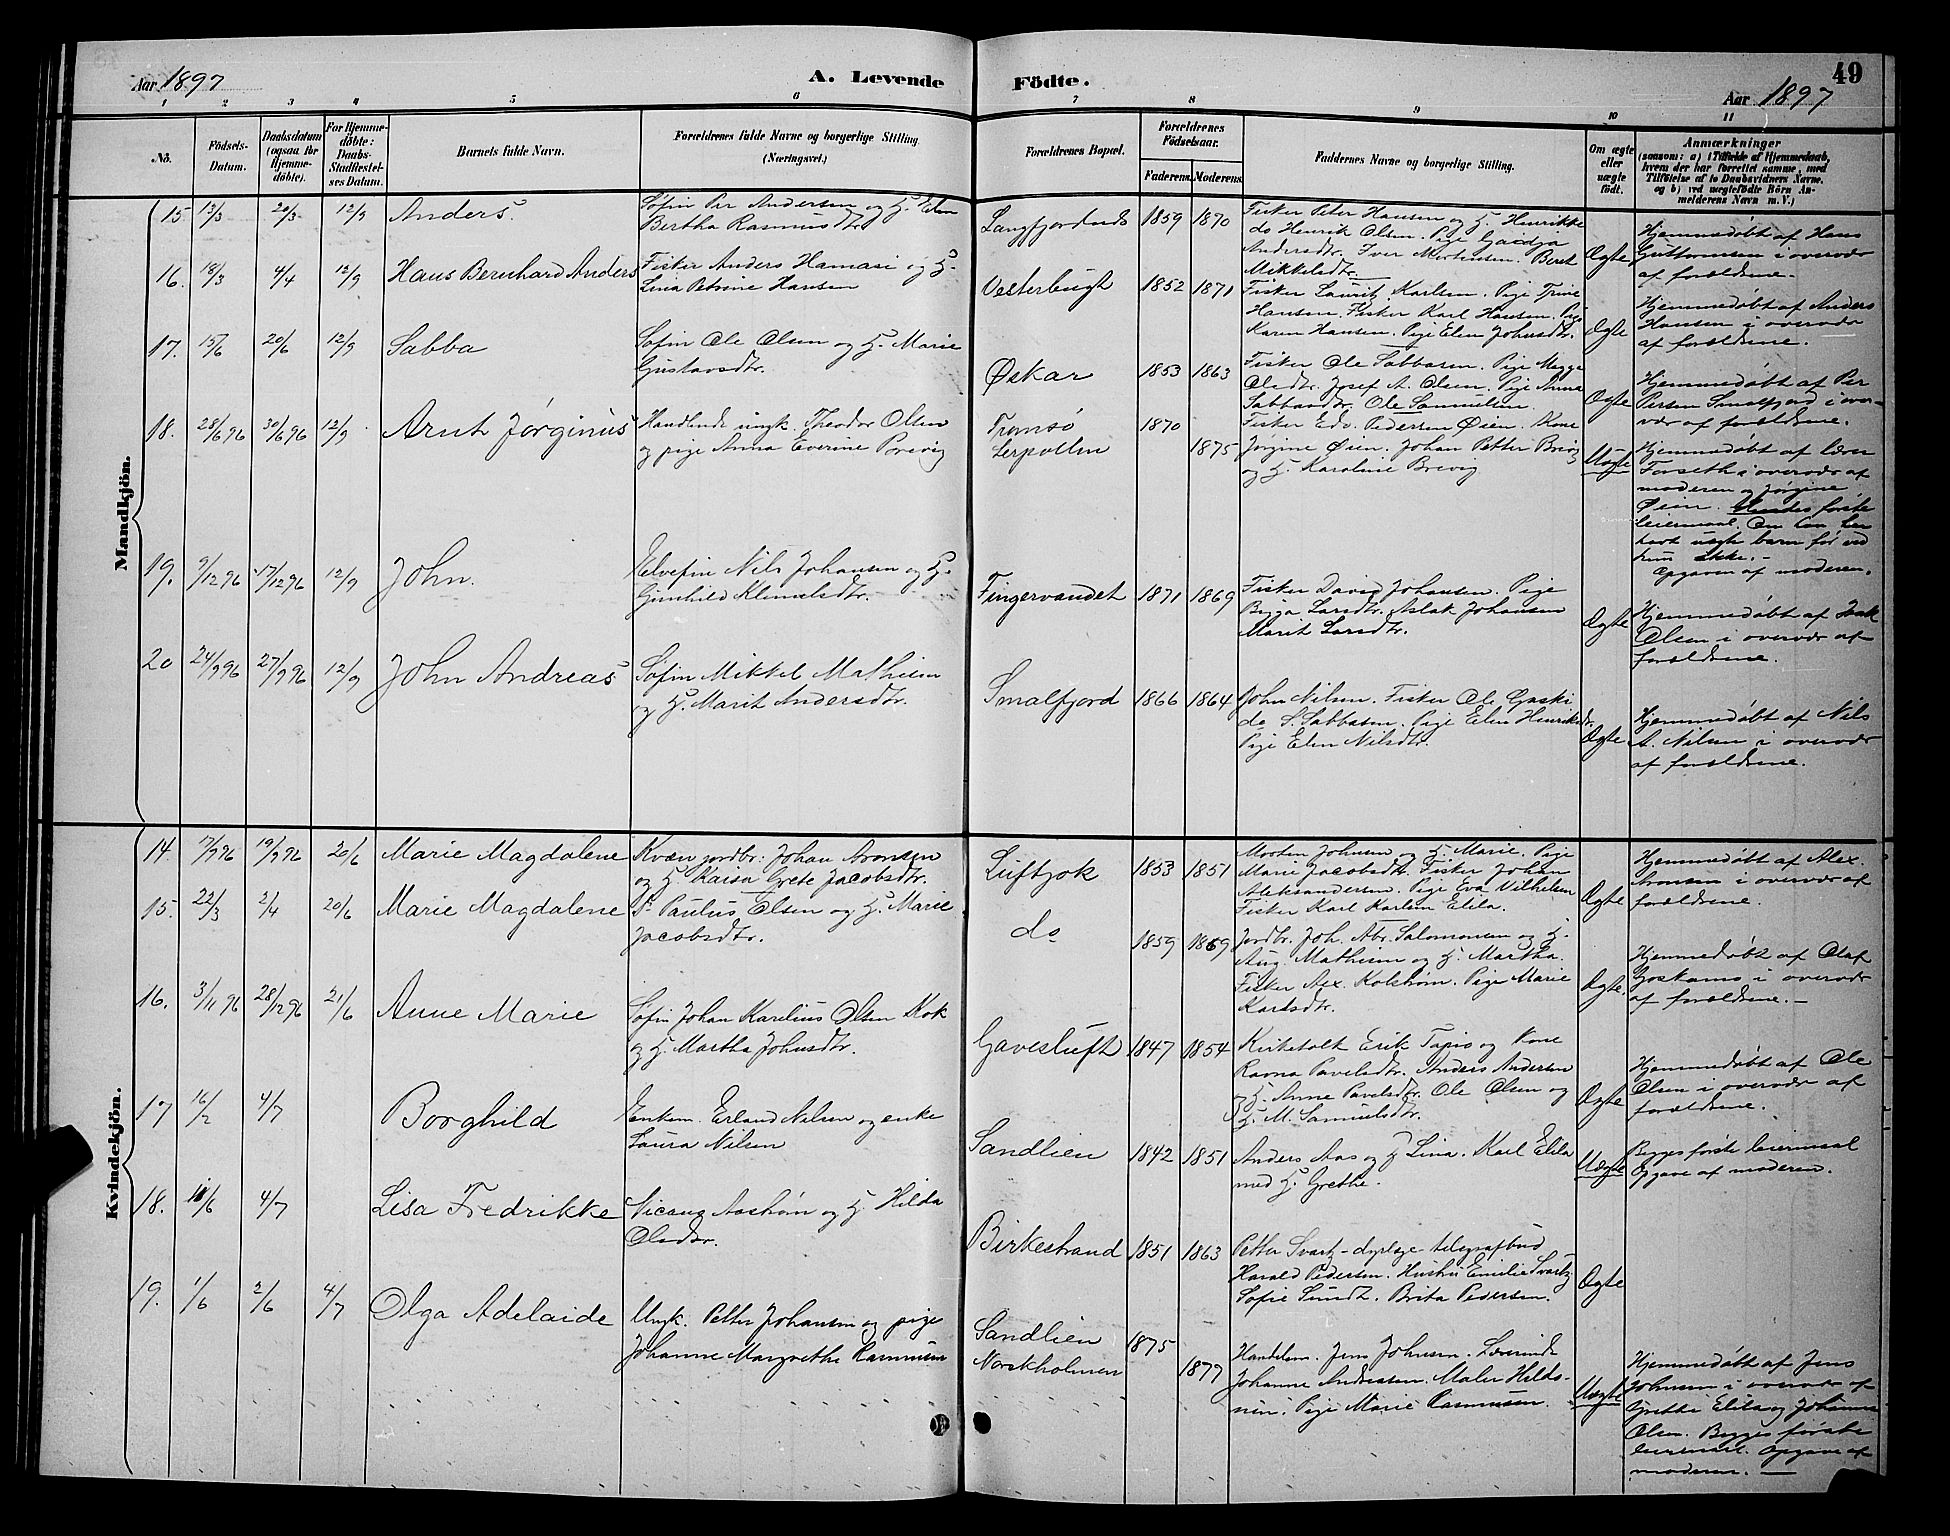 Aar 1897
A. Levende Födte.
Aar 1897
49
1 2 3 4 5 6 7 8 9 10 11
Nô.
Födsels-Datum.
Daabsdatum (ogsaa for Hjemme-döbte).
For Hjemme-döbte: Daabs-Stadfæstel-ses Datum.
Barnets fulde Navn.
Forældrenes fulde Navne og borgerlige Stilling. (Næringsvei.)
Forældrenes Bopæl.
Forældrenes Födselsaar.
Faderens. Moderens.
Faddernes Navne og borgerlige Stilling.
Om ægte eller uægte födt.
Anmærkninger
(saasom: a) i Tilfælde af Hjemmedaab, hvem der har forrettet samme, med Tilföielse af to Daabsvidners Navne, og b) ved uægtefödte Börn An-melderens Navn m. V.)
Mandkjön.
15 13/3 20/3 12/9 Anders.
Søfin Per Andersen og H. Elen
Bertha Rasmusdtr.
Langfjordnes 1859 1870
Fisker Peter Hansen og H. Henrikke
do Henrik Olsen. Pige
Andersdtr. Iver Mortensen. Berit
Mikkelsdtr.
Ægte
Hjemmedøbt af Hans
Guttormsen i overvær
af forældrene.
16. 18/3 4/4 12/9 Hans Bernhard Anders
Fisker Anders Hansen og H.
Lina Petrine Hansen
Vesterbugt 1852 1871
Fisker Laurits Karlsen. Pige Trine
Hansen. Fisker Karl Hansen. Pige
Karen Hansen. Pige Elen Johnsdtr.
Ægte
Hjemmedøbt af Anders
Hansen i overvær
af forældrene.
17. 15/6 20/6 12/9 Sabba
Søfin Ole Olsen og H. Marie
Gustavsdtr.
Øskar 1853 1863
Fisker Ole Sabbasen. Pige Magga
Olsdtr. Josef A. Olsen. Pige Anna
Sabbasdtr. Ole Samuelsen.
Ægte
Hjemmedøbt af Per
Persen Smalfjord i over-
vær af forældrene.
18. 28/6 96 30/6 96 12/9 Arnt Jørginus
Handlende ungk. Theodor Olsen
og pige Anna Everine Brevig
Tromsø 1870
Lerpollen 1875
Fisker Edv. Pedersen Øien. Kone
Jørgine Øien. Johan Petter Brevig
og H. Karoline Brevig
Uægte
Hjemmedøbt af lærer
Forseth i overvær af
moderen og Jørgine
Øien. første
leiermaal.
havt uægte barn før ved
hun ikke.-
Opgaven af moderen.
19. 9/12 96 17/12 96 12/9 John.
Elvefin Nils Johansen og H.
Gunhild Klemetsdtr.
Fingervandet 1871 1869
Fisker David Johansen. Pige
Bigga Larsdtr. Aslak Johansen
Marit Larsdtr.
Ægte
Hjemmedøbt af Isak
Olsen i overvær af
forældrene.
20 24/9 96 27/9 96 12/9 John Andreas
Søfin Mikkel Mathisen
og H. Marit Andersdtr.
Smalfjord 1866 1864
John Nilsen. Fisker Ole Gaski
do S. Sabbasen. Pige Elen Henriksdtr.
Pige Elen Nilsdtr.
Ægte
Hjemmedøbt af Nils
A. Nilsen i overvær
af forældrene.
Kvindekjön.
14. 17/9 96 19/9 96 20/6 Marie Magdalene
Kvæn jordbr: Johan Aronsen
og H. Kaisa Grete Jacobsdtr.
Luftjok 1853 1851
Morten Johnsen og H. Marie. Pige
Marie Jacobsdtr. Fisker Johan
Aleksandersen. Pige Eva Vilhelsen
Fisker Karl Karlsen Elila.
Ægte
Hjemmedøbt af Alex.
Aronsen i overvær af
forældrene.
15. 22/3 2/4 20/6 Marie Magdalene
Paulus Olsen og H. Marie
Jacobsdtr.
do 1859 1869
Jordbr. Joh. Abr. Salomonsen og H.
Aug. Mathisen og H. Martha.
Fisker Alex. Kolstrøm. Pige Marie
Karlsdtr.
Ægte.
Hjemmedøbt af Olaf
i overvær
af forældrene.-
16. 3/11 96 28/12 96 21/6 Anne Marie
Søfin Johan Karelius Olsen Kok
og H. Martha Johnsdtr.
Gavesluft 1847 1854
Kirketolk Erik Tapio og Kone
Ravna Pavelsdtr. Anders Andersen
og H. Anne Pavelsdtr. Ole Olsen og
H. M. Samuelsdtr.
Ægte
Hjemmedøbt af Ole
Olsen i overvær af
forældrene.
17 16/2 4/7 Borghild
Enkem. Erland Nilsen og enke
Laura Nilsen
Sandlien 1842 1851
Anders Aas og H Lina. Karl Elila
med H. Grethe.
Uægte
Begges første leiermaal
Opgave af moderen.
18. 11/6 4/7 Lisa Fredrikke
Nicanus Aastrøm og H. Hilda
Olsdtr.
Birkestrand 1851 1863
Petter Svartz - dyrlæge - telegrafbud
Harald Pedersen. Hustru Emilie Svartz
Sofie Sundt. Brita Pedersen.
Ægte
19. 1/6 2/6 4/7 Olga Adelaide
Ungk. Petter Johansen og pige
Johanne Margrethe Rasmussen
Sandlien 1875
Norskholmen 1877
Handelsm. Jens Johnsen. Lærerinde
Johanne Andreassen. Maler Hilds-
nen. Pige Marie Rasmussen.
Uægte
Hjemmedøbt af Jens
Johnsen i overvær af
Grethe Elila og Johanna
Olsen. Begges første
leiermaal. Opgave af
moderen. —